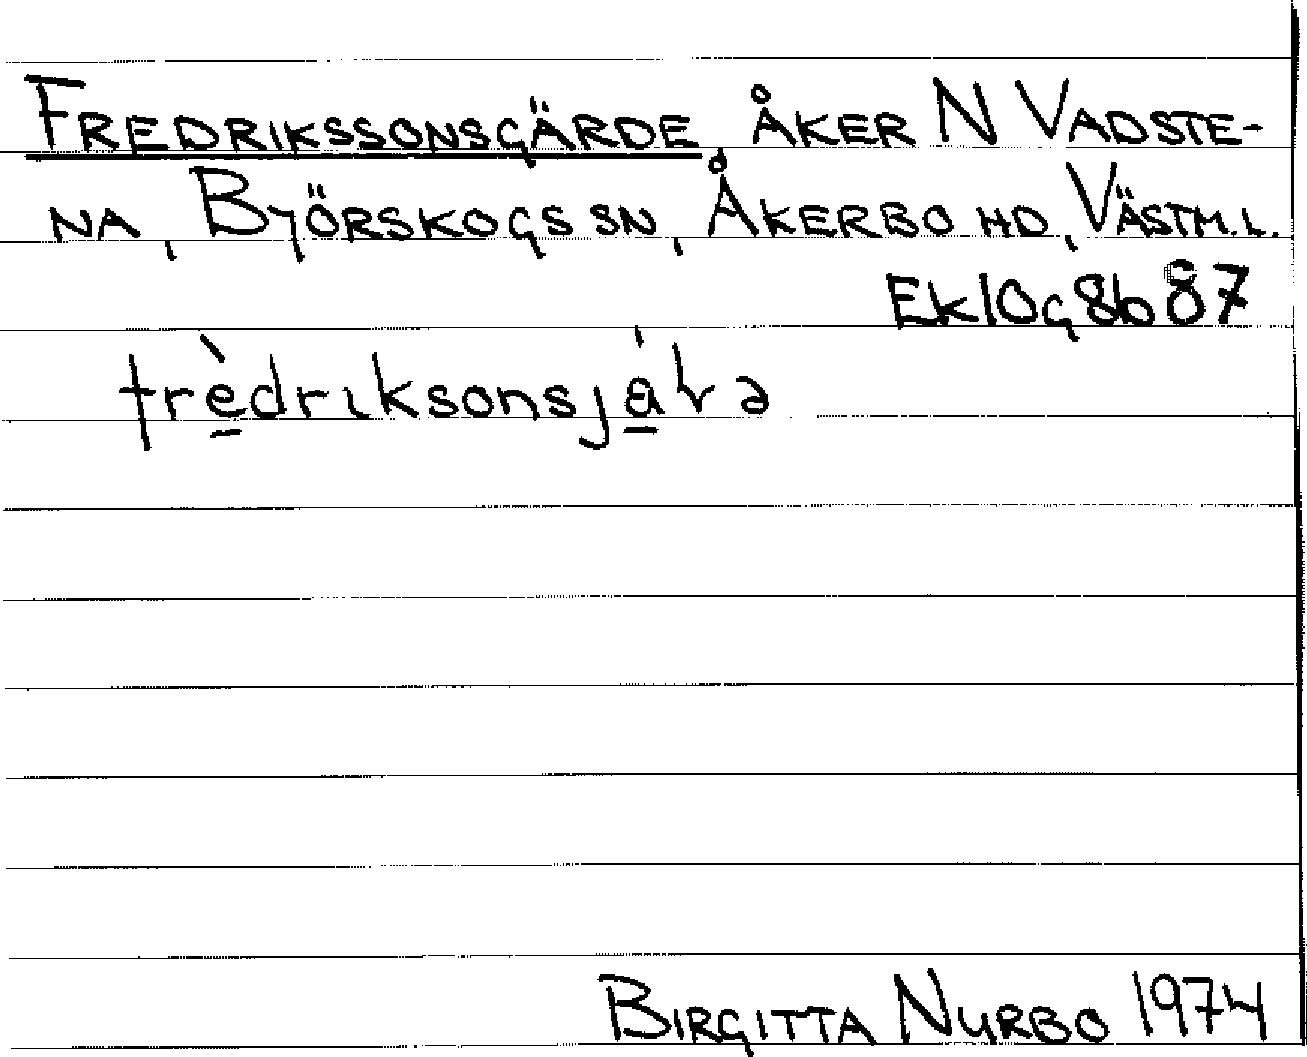 FREDRIKSSONSGÄRDE ÅKER N VADSTE-
NA, BJÖRSKOGS SN, ÅKERBO HD, VÄSTM.L.
Ek 10g8b 87
BIRGITTA NYRBO 1974